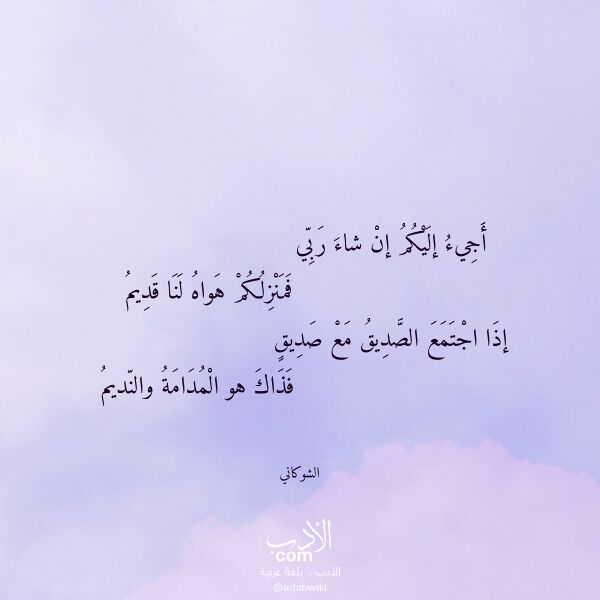 أَجِيءُ إلَيْكُمُ إنْ شاءَ رَبِّي
فَمَنْزِلُكُمْ هَواهُ لَنَا قَدِيمُ
إذَا اجْتَمَعَ الصَّدِيقُ مَعْ صَدِيقٍ
فَذَاكَ هو الْمُدَامَةُ والنّديمُ
الشوكاني
الأدب
com
الأدب .. بلغة عربية
@adabwiki